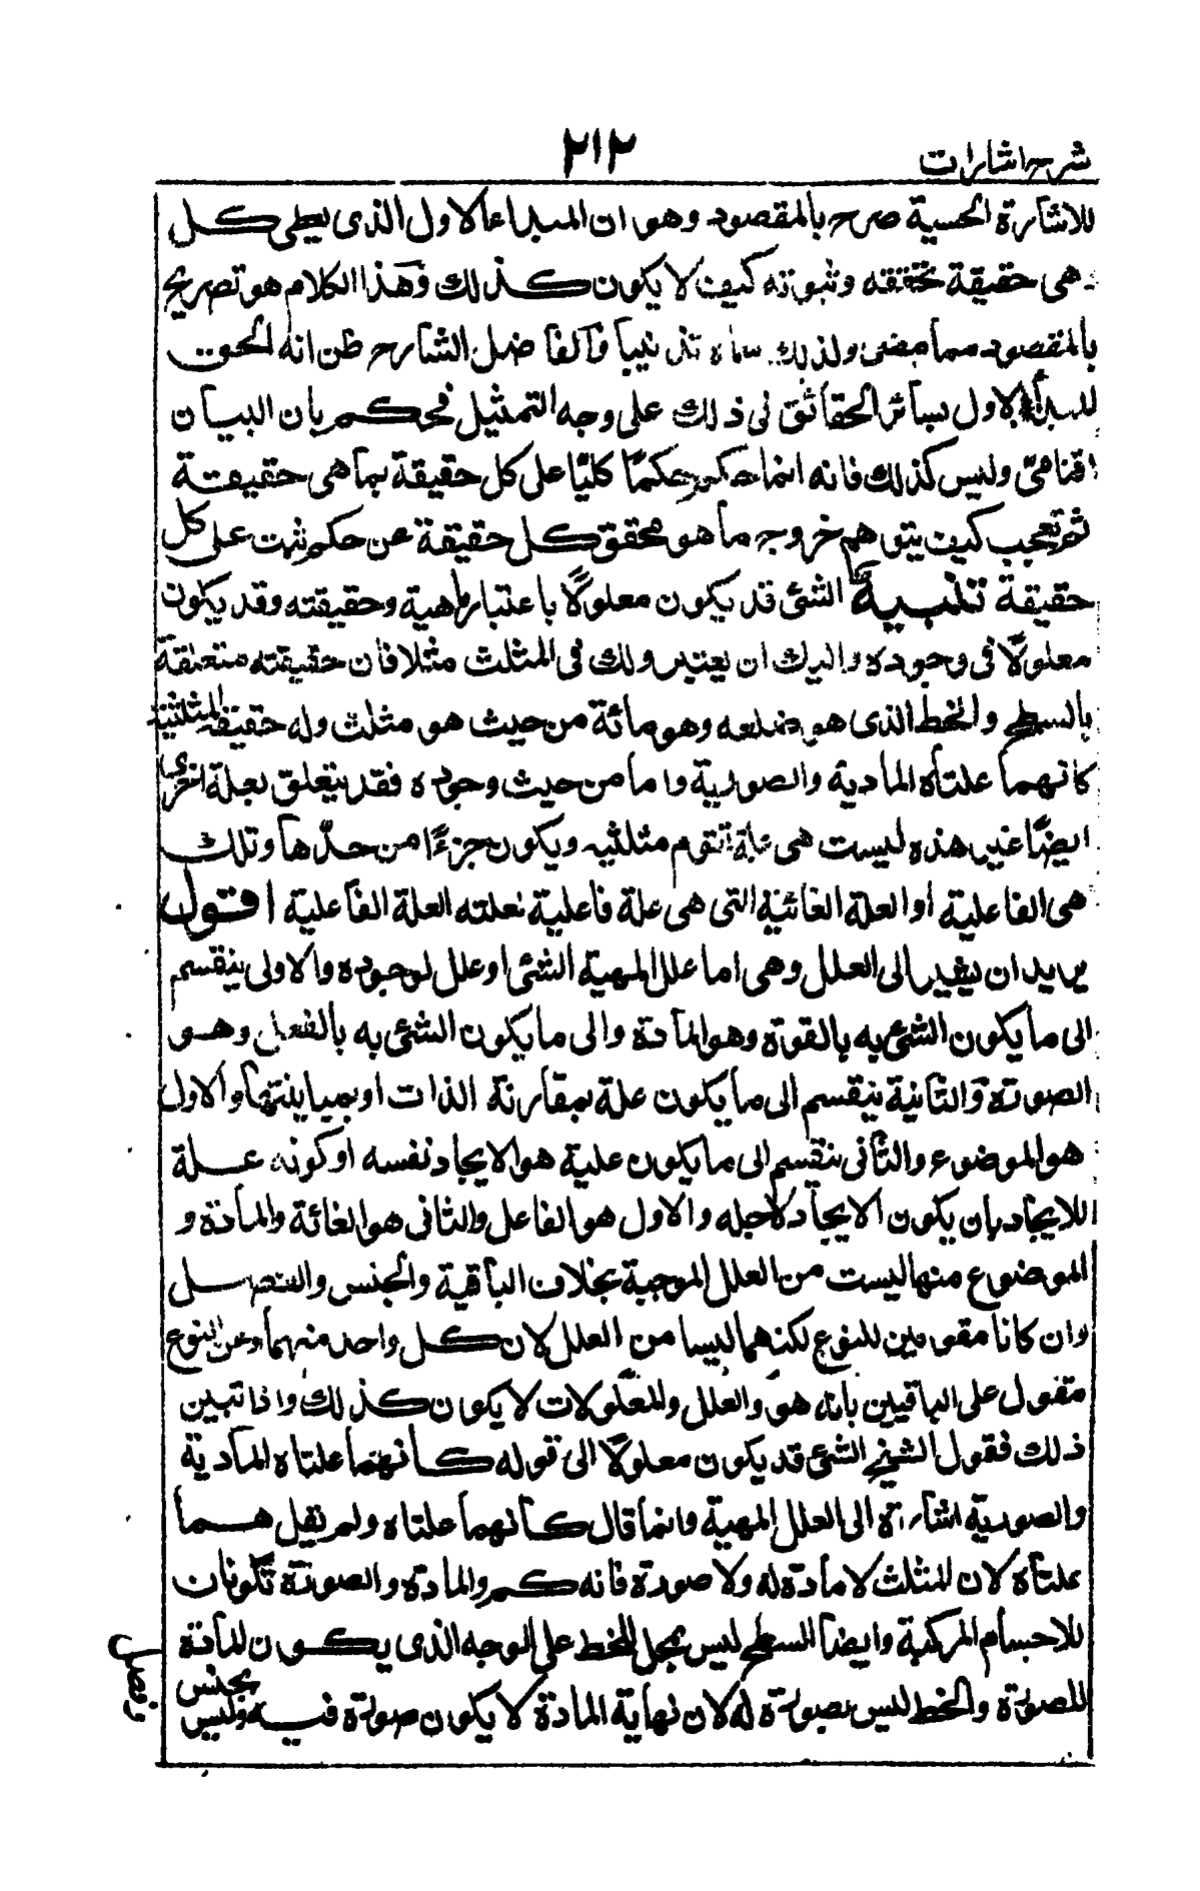 شرح اشارات
٢١٢
للاشارة الحسية صرح بالمقصود وهو ان المبداء الاول الذى يعطى كل
ذى حقيقة تحققه وثبوته كيف لا يكون كذلك وهذا الكلام هو تصريح
بالمقصود مما مضى ولذلك سماه تذنيبا والفاضل الشارح ظن انه الحق
للمبدأ الاول بسائر الحقائق فى ذلك على وجه التمثيل فحكم بان البيان
اقناعى وليس كذلك فانه انما حكم حكمًا كليًا على كل حقيقة بما هى حقيقة
ثم تعجب كيف يتوهم خروج ما هو محقق كل حقيقة عن حكم ثبت على كل
حقيقة تنبيه الشئ قد يكون معلولًا باعتبار ماهية وحقيقته وقد يكون
معلولًا فى وجوده واليك ان يعتبر ذلك فى المثلث مثلا فان حقيقته متعلقة
بالسطح والخط الذى هو ضلعه وهو مائة من حيث هو مثلث وله حقيقة المثلثية
كانهما علتاه المادية والصورية واما من حيث وجوده فقد يتعلق بعلة اخرى
ايضًا غير هذه ليست هى علة تقوم مثلثيه ويكون جزءًا من حدها وتلك
هى الفاعلية او العلة الغائية التى هى علة فاعلية لعلته العلة الفاعلية اقول
يريد ان يشير الى العلل وهى اما علل المهية الشئ او علل لوجوده والاولى ينقسم
الى ما يكون الشئ به بالقوة وهو المادة والى ما يكون الشئ به بالفعل وهو
الصورة والثانية ينقسم الى ما يكون علة بمقارنة الذات او بمباينتها والاول
هو الموضوع والثانى ينقسم الى ما يكون علية هو الايجاد نفسه او كونه علة
للايجاد بان يكون الايجاد لاجله والاول هو الفاعل والثانى هو الغائة والمادة و
الموضوع منها ليست من العلل الموجبة بخلاف الباقية والجنس والفصل
وان كانا مقومين للنوع لكنهما ليسا من العلل لان كل واحد منهما وعن النوع
مقول على الباقيين بانه هو والعلل والمعلولات لا يكون كذلك واذا تبين
ذلك فقول الشيخ الشئ قد يكون معلولًا الى قوله كانهما علتاه المادية
والصورية اشارة الى العلل المهية وانما قال كانهما علتاه ولم يقل هما
علتاه لان المثلث لا مادة له ولا صورة فانه كم والمادة والصورة تكونان
للاجسام المركبة وايضا السطح ليس بمحل للخط على الوجه الذى يكون المادة
للصورة والخط ليس بصورة له لان نهاية المادة لا يكون صورة فيه وليس بجنس
وفصل